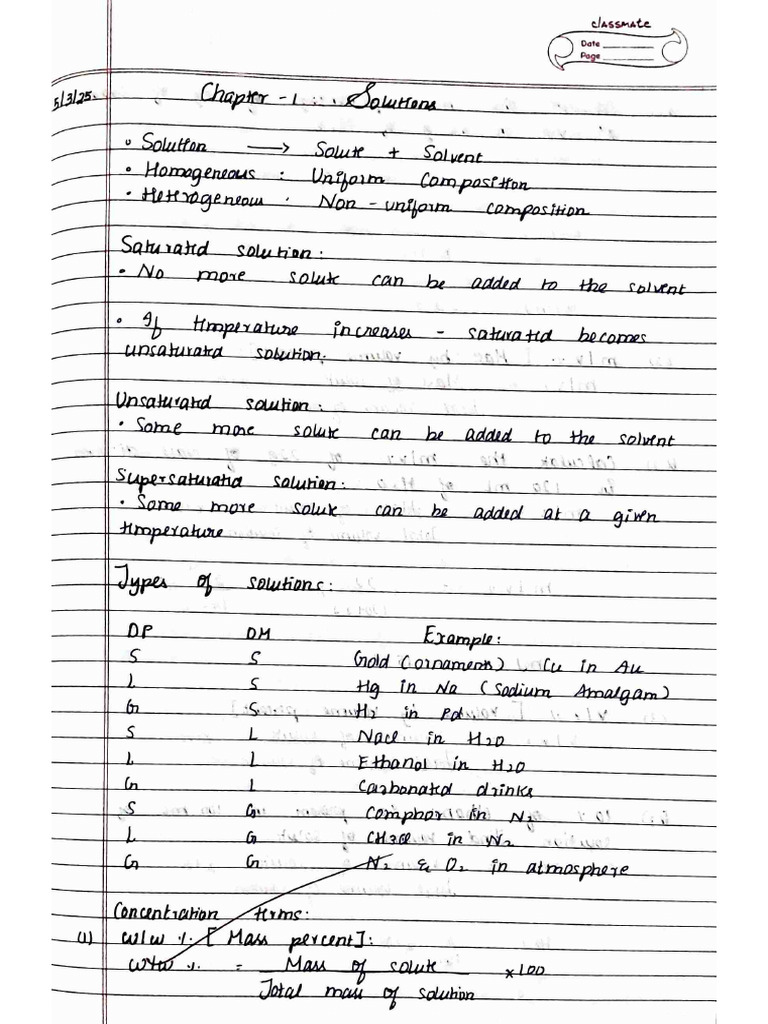 classmate
Date
Page
5/3/25.
Chapter - 1 Solutions
• Solution → Solute + Solvent
• Homogeneous : Uniform composition
• Heterogeneous : Non-uniform composition
Saturated solution:
• No more solute can be added to the solvent
• If temperature increases - saturated becomes
unsaturated solution.
Unsaturated solution:
• Some more solute can be added to the solvent
Supersaturated solution:
• Some more solute can be added at a given
temperature
Types of solutions:
DP DM Example:
S S Gold (ornaments), Cu in Au
L S Hg in Na (Sodium Amalgam)
G S H2 in Pd
S L NaCl in H2O
L L Ethanol in H2O
G L Carbonated drinks
S G Comphor in N2
L G in N2
G G N2 & O2 in atmosphere
Concentration terms:
(1) w/w % [Mass percent]:
w/w % = Mass of solute × 100
Total mass of solution